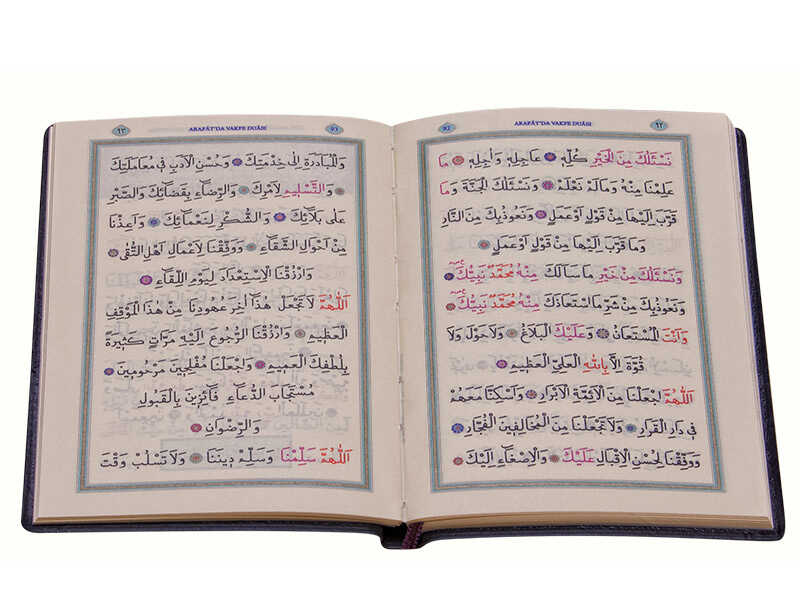 ٦٢ ARAFÂT'DA VAKFE DUÂSI 92
نَسْئَلُكَ مِنَ الْخَيْرِ كُلِّهِ عَاجِلِهِ وَاٰجِلِهِ مَا
عَلِمْنَا مِنْهُ وَمَالَمْ نَعْلَمْ وَنَسْئَلُكَ الْجَنَّةَ وَمَا
قَرَّبَ اِلَيْهَا مِنْ قَوْلٍ اَوْعَمَلٍ وَنَعُوذُبِكَ مِنَ النَّارِ
وَمَا قَرَّبَ اِلَيْهَا مِنْ قَوْلٍ اَوْعَمَلٍ
وَنَسْئَلُكَ مِنْ خَيْرِ مَا سَاَلَكَ مِنْهُ مُحَمَّدٌ نَبِيُّكَ
وَنَعُوذُبِكَ مِنْ شَرِّ مَا اسْتَعَاذَكَ مِنْهُ مُحَمَّدٌ نَبِيُّكَ
وَاَنْتَ الْمُسْتَعَانُ وَعَلَيْكَ الْبَلَاغُ وَلَاحَوْلَ وَلَا
قُوَّةَ اِلَّا بِاللّٰهِ الْعَلِيِّ الْعَظِيمِ
اَللّٰهُمَّ اجْعَلْنَا مِنَ الْاَئِمَّةِ الْاَبْرَارِ وَاَسْكِنَّا مَعَهُمْ
فِي دَارِ الْقَرَارِ وَلَا تَجْعَلْنَا مِنَ الْمُخَالِفِينَ الْفُجَّارِ
وَوَفِّقْنَا لِحُسْنِ الْاِقْبَالِ عَلَيْكَ وَالْاِصْغَاءِ اِلَيْكَ
ARAFÂT'DA VAKFE DUÂSI 93
وَالْمُبَادَرَةِ اِلٰى خِدْمَتِكَ وَحُسْنِ الْاَدَبِ فِي مُعَامَلَتِكَ
وَالتَّسْلِيمِ لِاَمْرِكَ وَالرِّضَاءِ بِقَضَائِكَ وَالصَّبْرِ
عَلٰى بَلَائِكَ وَالشُّكْرِ لِنَعْمَائِكَ وَاَعِذْنَا
مِنْ اَحْوَالِ الشَّقَاءِ وَوَفِّقْنَا لِاَعْمَالِ اَهْلِ التُّقٰى
وَارْزُقْنَا الْاِسْتِعْدَادَ لِيَوْمِ اللِّقَاءِ
اَللّٰهُمَّ لَا تَجْعَلْ هٰذَا اٰخِرَ عُهُودِنَا مِنْ هٰذَا الْمَوْقِفِ
الْعَظِيمِ وَارْزُقْنَا الرُّجُوعَ اِلَيْهِ مَرَّاتٍ كَثِيرَةً
بِلُطْفِكَ الْعَمِيمِ وَاجْعَلْنَا مُفْلِحِينَ مَرْحُومِينَ
مُسْتَجَابَ الدُّعَاءِ فَائِزِينَ بِالْقَبُولِ
وَالرِّضْوَانِ
اَللّٰهُمَّ سَلِّمْنَا وَسَلِّمْ دِينَنَا وَلَا تَسْلُبْ وَقْتَ